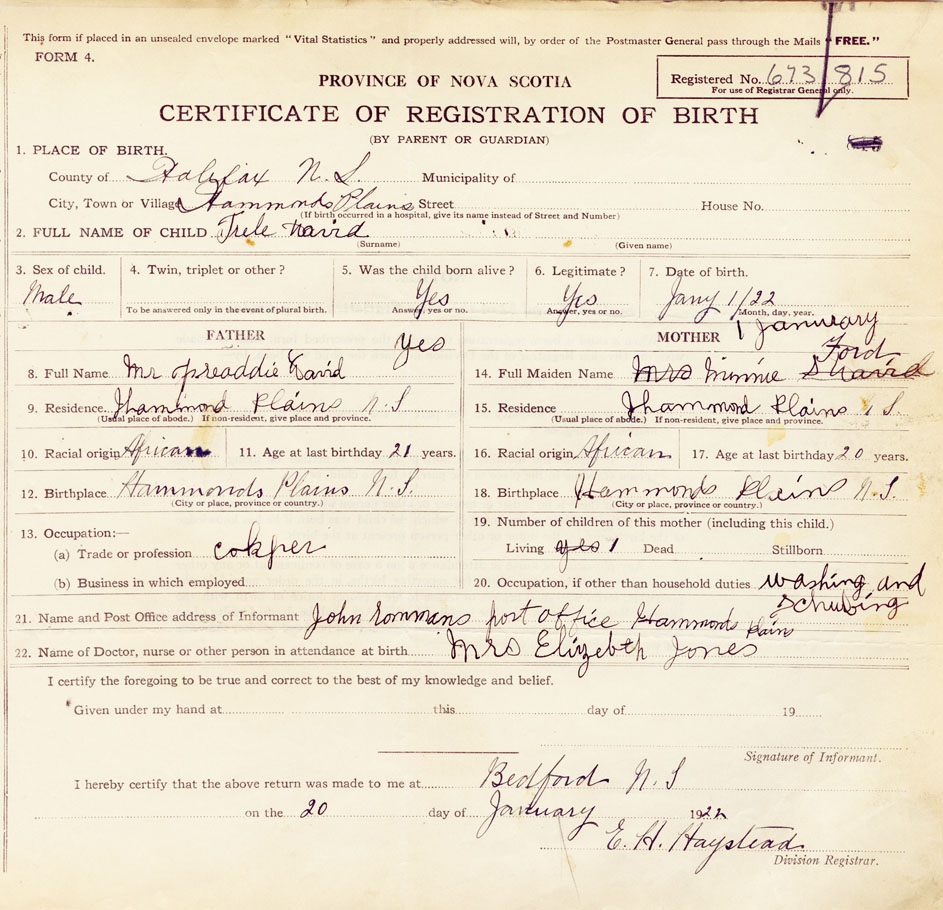 This form if placed in an unsealed envelope marked "Vital Statistics" and properly addressed will, by order of the Postmaster General pass through the Mails "FREE."
FORM 4.
PROVINCE OF NOVA SCOTIA
Registered No. 673 815
For use of Registrar General only.
CERTIFICATE OF REGISTRATION OF BIRTH
(BY PARENT OR GUARDIAN)
1. PLACE OF BIRTH.
County of Halifax N.S. Municipality of
City, Town or Village Hammonds Plains Street House No.
(If birth occurred in a hospital, give its name instead of Street and Number)
2. FULL NAME OF CHILD David
(Surname) (Given name)
3. Sex of child. 4. Twin, triplet or other? 5. Was the child born alive? 6. Legitimate? 7. Date of birth.
Male Yes Yes Jany 1/22
To be answered only in the event of plural birth. Answer, yes or no. Answer, yes or no. Month, day, year.
1 January
FATHER yes MOTHER
Ford
8. Full Name Mr David 14. Full Maiden Name Mrs Minnie David
9. Residence Hammond Plains N S 15. Residence Hammond Plains N S.
(Usual place of abode.) If non-resident, give place and province. (Usual place of abode.) If non-resident, give place and province.
10. Racial origin African 11. Age at last birthday 21 years. 16. Racial origin African 17. Age at last birthday 20 years.
12. Birthplace Hammonds Plains N.S. 18. Birthplace Hammonds Pleins N.S.
(City or place, province or country.) (City or place, province or country.)
13. Occupation:— 19. Number of children of this mother (including this child.)
(a) Trade or profession cokper Living yes 1 Dead Stillborn
(b) Business in which employed 20. Occupation, if other than household duties washing and
Schubing
21. Name and Post Office address of Informant John post office Hammonds
Plains
22. Name of Doctor, nurse or other person in attendance at birth Mrs Elizebeth Jones
I certify the foregoing to be true and correct to the best of my knowledge and belief.
Given under my hand at this day of 19
Signature of Informant.
I hereby certify that the above return was made to me at Bedford N.S
on the 20 day of January 1922
E. H. Haystead
Division Registrar.